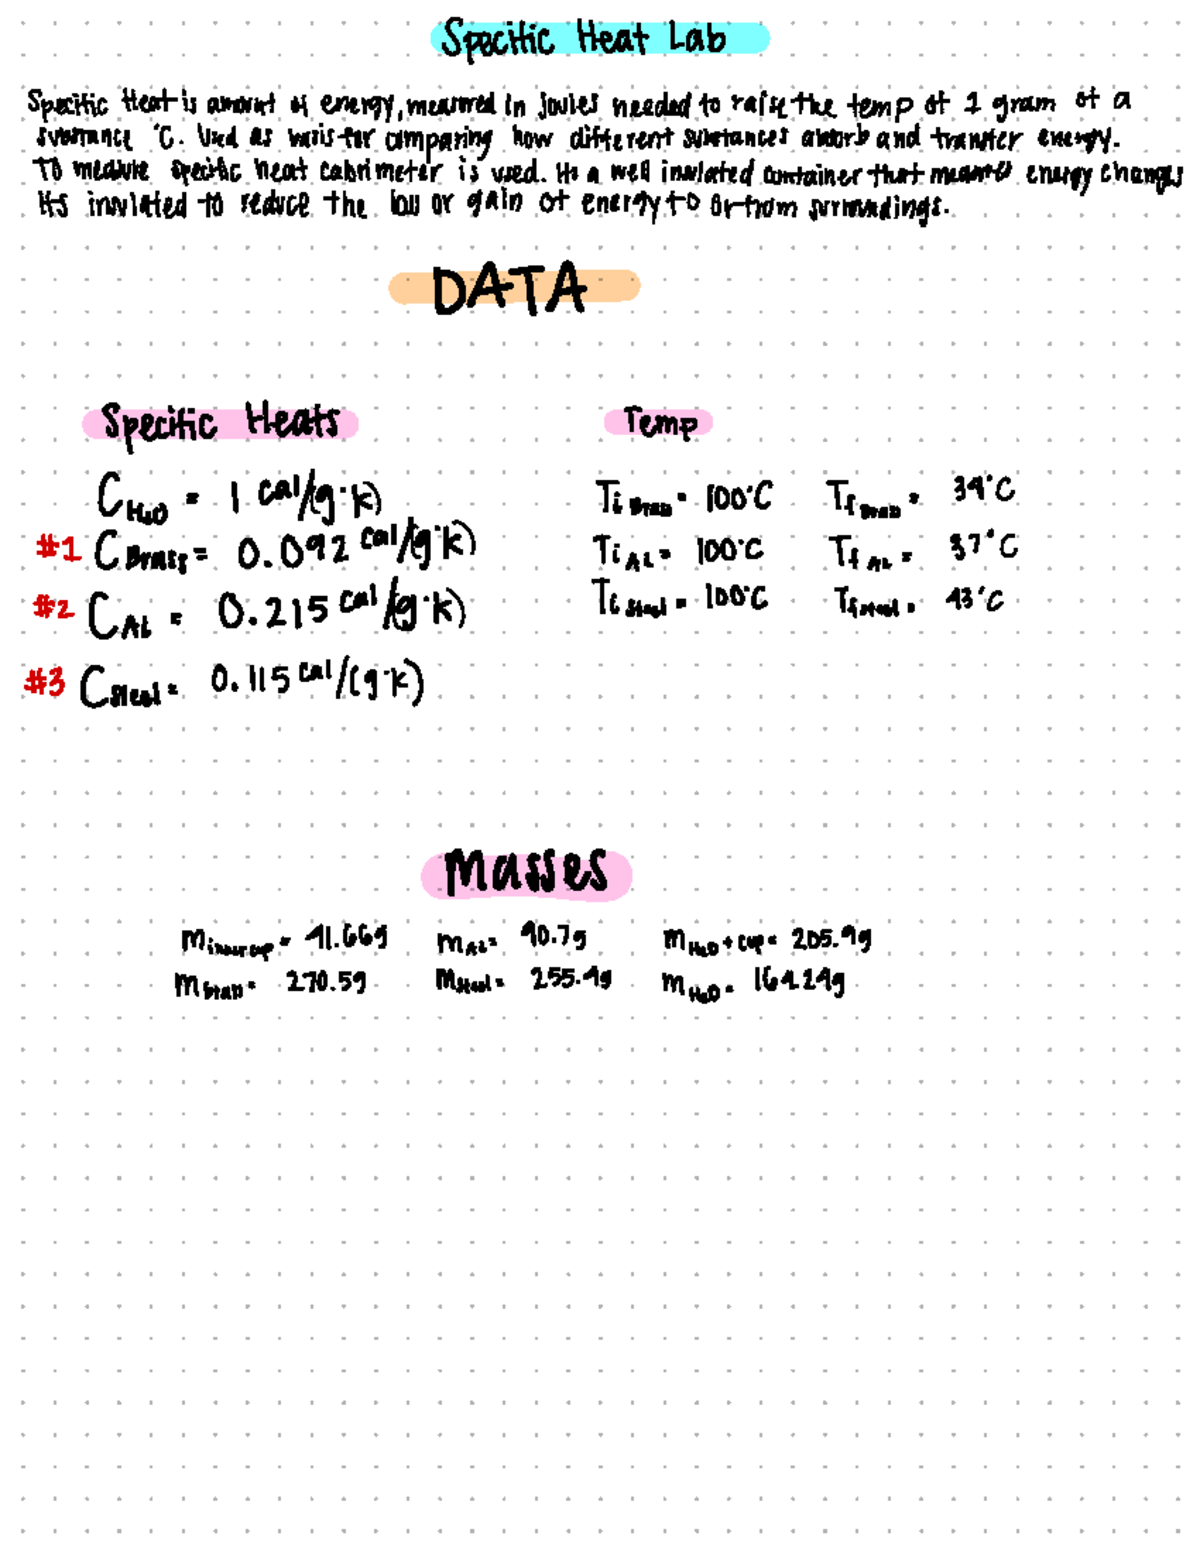 Specific Heat Lab
Specific Heat is amount of energy, measured in joules needed to raise the temp of 1 gram of a
substance °C. Used as basis for comparing how different substances absorb and transfer energy.
To measure specific heat calorimeter is used. Its a well insulated container that measures energy changes
Its insulated to reduce the loss or gain of energy to or from surroundings.
DATA
Specific Heats Temp
C H₂O = 1 cal/(g·k) Ti Brass = 100°C Tf Brass = 39°C
#1 C Brass = 0.092 cal/(g·k) Ti AL = 100°C Tf AL = 37°C
#2 C AL = 0.215 cal/(g·k) Ti Steel = 100°C Tf Steel = 43°C
#3 C Steel = 0.115 cal/(g·k)
Masses
m inner cup = 41.66g m AL = 90.7g m H₂O + cup = 205.9g
m brass = 270.5g m steel = 255.4g m H₂O = 164.24g